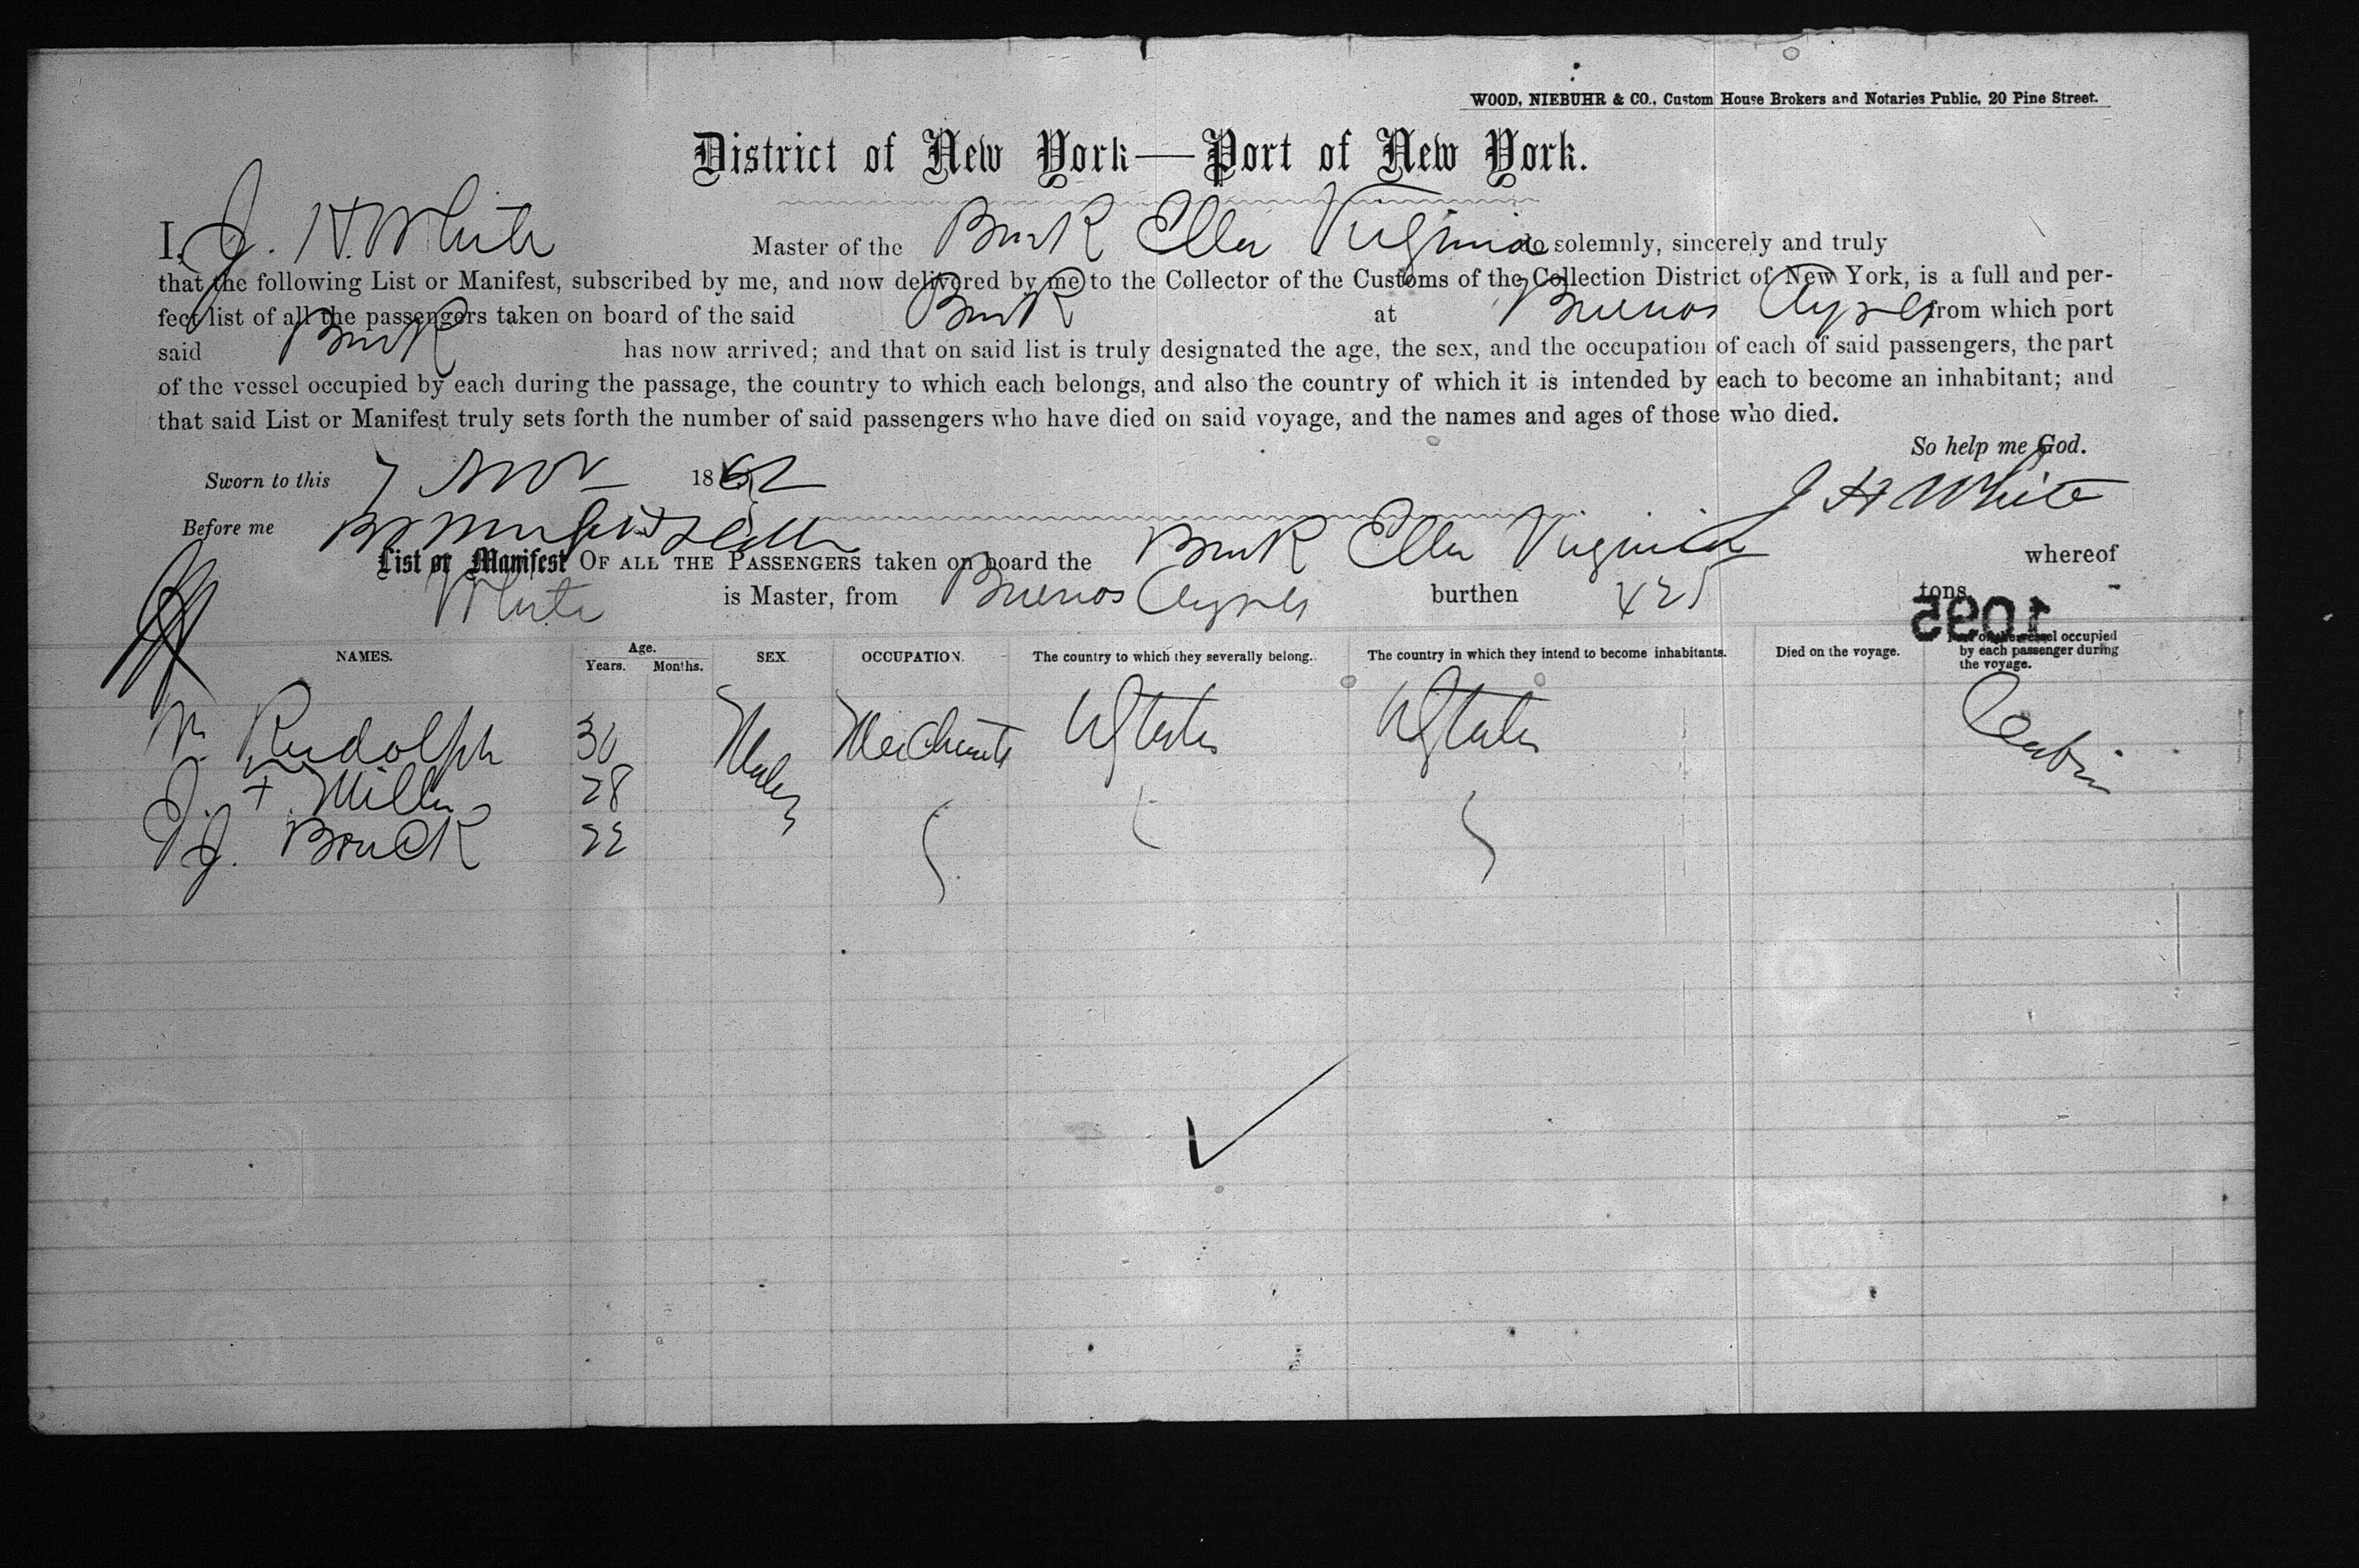 WOOD, NIEBUHR & CO., Custom House Brokers and Notaries Public, 20 Pine Street.
District of New York—Port of New York.
I, J. H. White Master of the Bark Ella Virginia do solemnly, sincerely and truly
that the following List or Manifest, subscribed by me, and now delivered by me to the Collector of the Customs of the Collection District of New York, is a full and per-
fect list of all the passengers taken on board of the said Bark at Buenos Ayres from which port
said Bark has now arrived; and that on said list is truly designated the age, the sex, and the occupation of each of said passengers, the part
of the vessel occupied by each during the passage, the country to which each belongs, and also the country of which it is intended by each to become an inhabitant; and
that said List or Manifest truly sets forth the number of said passengers who have died on said voyage, and the names and ages of those who died.
So help me God.
Sworn to this 7 Nov 1862
J H White
Before me
List or Manifest OF ALL THE PASSENGERS taken on board the Bark Ella Virginia whereof
White is Master, from Buenos Ayres burthen 425 tons
1095
NAMES. Age. Years. Months. SEX. OCCUPATION. The country to which they severally belong. The country in which they intend to become inhabitants. Died on the voyage. Part of the vessel occupied by each passenger during the voyage.
Rudolph 30 Males Merchants UStates UStates Cabin
J. + Miller 28
J. J. Brack 22